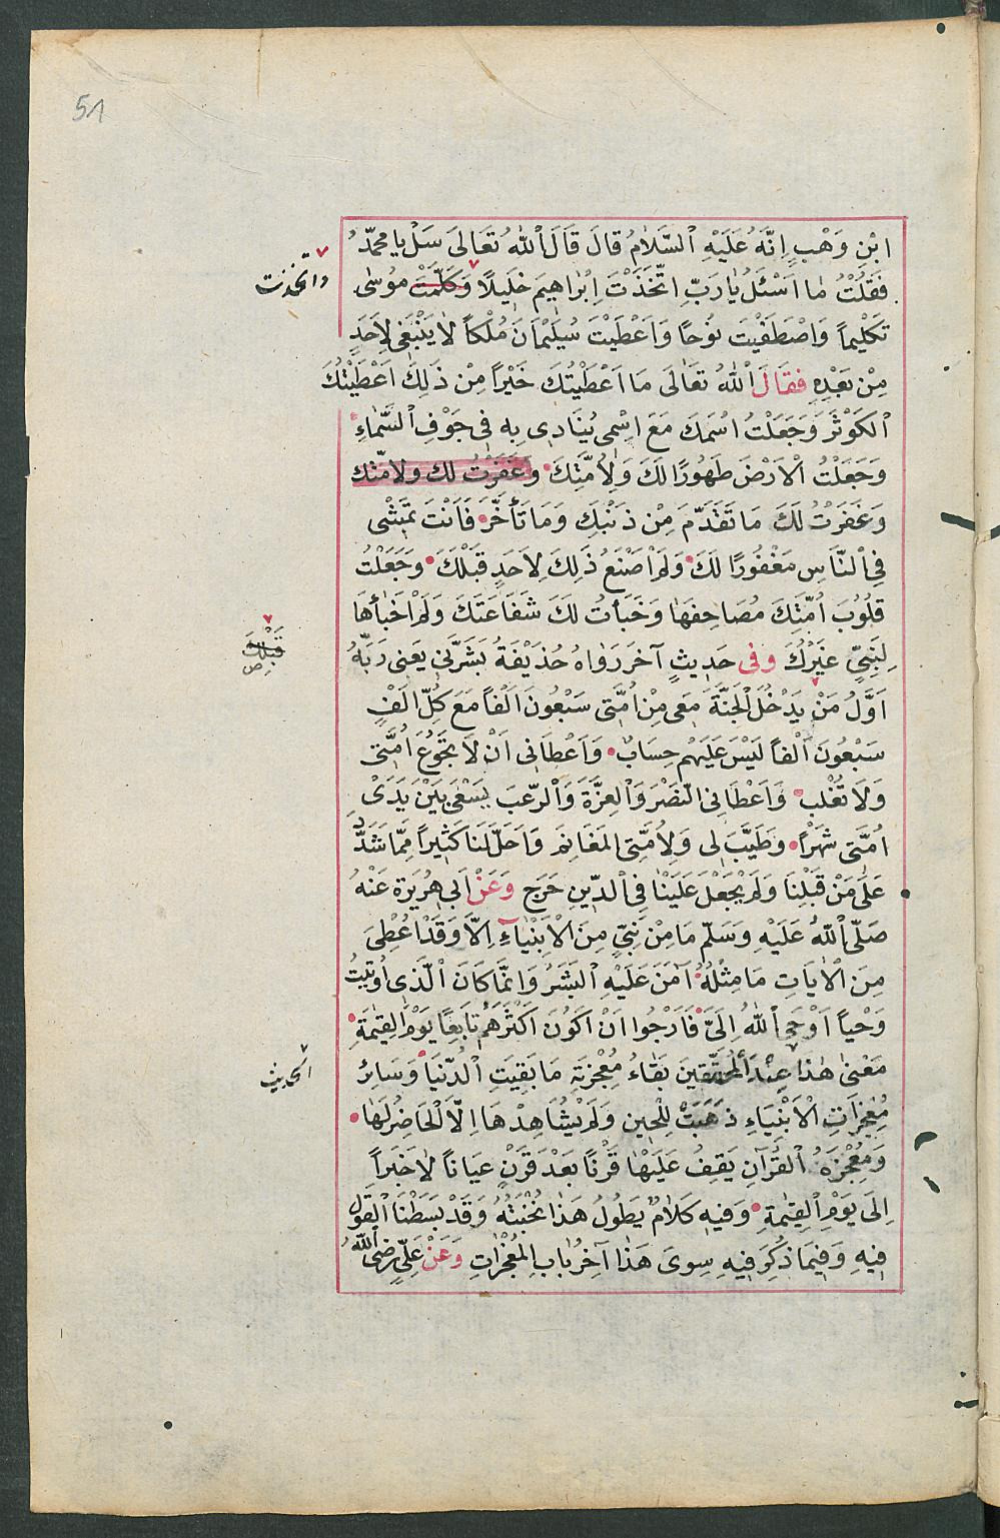 51
ابْنِ وَهْبٍ اِنَّهُ عَلَيْهِ ٱلسَّلَامُ قَالَ قَالَ ٱللّٰهُ تَعَالَى سَلْ يا محمّدُ
فَقُلْتُ مٰا اَسْئَلُ يٰا رَبِّ اتَّخَذْتَ اِبْرٰاهِيمَ خَلِيلًا وَكَلَّمْتَ مُوسٰى
واتخذت
تَكْلِيماً وَاصْطَفَيْتَ نوُحاً وَاَعْطَيْتَ سُلَيْمٰانَ مُلْكاً لاٰ يَنْبَغى لِاَحَدٍ
مِنْ بَعْدِهِ فَقَالَ ٱللّٰهُ تعَالَى مَا اَعْطَيْتُكَ خَيْراً مِنْ ذَلِكَ اَعْطَيْتُكَ
ٱلكَوْثَرَ وَجَعَلْتُ اسْمَكَ مَعَ اِسْمى يُنَادى بِه فى جَوْفِ ٱلسَّمٰاءِ
وَجَعَلْتُ الْاَرْضَ طَهُورًا لَكَ وَلِاُمَّتِكَ وَغَفَرْتُ لك ولامّتك
وَغَفَرْتُ لَكَ مَا تَقَدَّمَ مِنْ ذَنْبِكَ وَمَا تَأَخَّرَ فَاَنْتَ تَمْشى
فِى ٱلنَّاسِ مَغْفُورًا لَكَ وَلَمْ اَصْنَعْ ذَلِكَ لِاَحَدٍ قَبْلَكَ وَجَعَلْتُ
قلُوُبَ اُمَّتِكَ مَصَاحِفَهٰا وَخَبَأْتُ لَكَ شَفَاعَتَكَ وَلَمْ اَخْبَأْهَا
لِنَبِىّ غَيْرُكَ وفى حَدِيثٍ آخَرَ رَوٰاهُ حُذَيْفَةُ بَشَّرَنى يَعنى رَبّهُ
قبلك
اَوَّلُ مَنْ يَدْخُلُ الْجَنَّةَ مَعى مِنْ اُمَّتى سَبْعُونَ اَلْفاً مَعَ كُلّ اَلْفٍ
سَبْعُونَ اَلْفاً لَيْسَ عَلَيْهِمْ حِسَابٌ وَاَعْطَانى اَنْ لاَ تَجُوعَ اُمَّتى
وَلاَ تُغْلَبَ وَاَعْطَانِى النَّصْرَ وَالْعِزَّةَ وَالْرّعبَ يَسْعٰى بَيْنَ يَدَىْ
اُمَّتى شَهْرًا وَطَيَّبَ لى وَلِاُمَّتِى المَغَانِمَ وَاَحَلَّ لَنَا كَثيراً مِمَّا شَدَّدَ
عَلٰى مَنْ قَبْلَنَا وَلَمْ يَجْعَلْ عَلَيْنَا فِى الدّينِ حَرَج وَعَنْ اَبى هُرَيْرَة عَنْهُ
صَلّى ٱللّٰهُ عَلَيْهِ وَسَلّم مَا مِنْ نَبِىٍّ مِنَ الْاَنْبِيٰآءِ اِلاَّ وَقَدْ اُعْطِىَ
مِنَ الْاٰيَاتِ مَا مِثْلُهُ آمَنَ عَلَيْهِ ٱلبَشَرُ وَانّمَا كَانَ ٱلَّذى اُوتيتُ
وَحْياً اَوْحَى ٱللّٰهُ اِلَىَّ فَاَرْجُوا اَنْ اَكُونَ اَكْثَرَهُمْ تَابِعًا يَوْمَ القِيٰمَةِ
مَعْنٰى هٰذا عِنْدَ ٱلْمُحَقِّقينَ بَقٰاءُ مُعْجِزَتِهِ مَا بَقِيَتِ ٱلدُّنْيَا وَسَائِرُ
الحديث
مُعجِزَاتِ الْاَنْبِيَاءِ ذَهَبَتْ لِلْحين وَلَمْ يُشَاهِدْهَا اِلاَّ الْحَاضِرُ لَهٰا
وَمُعْجِزَةُ ٱلْقُرْآنِ يَقِفُ عَلَيْهٰا قَرْنًا بَعْدَ قَرْنٍ عَيَاناً لٰا خَبَراً
اِلَى يَوْمِ ٱلقِيٰمَةِ وَفيهِ كَلاٰمٌ يَطُولُ هَذٰا نُخْبَتُهُ وَقَدْ بَسَطْنَا ٱلقَوْل
فِيهِ وَفِيمَا ذُكِرَ فِيهِ سِوىَ هَذٰا آخِرُ بَابِ المُعْجِزٰاتِ وَعَنْ عَلِىٍّ رَضى ٱللّٰهُ